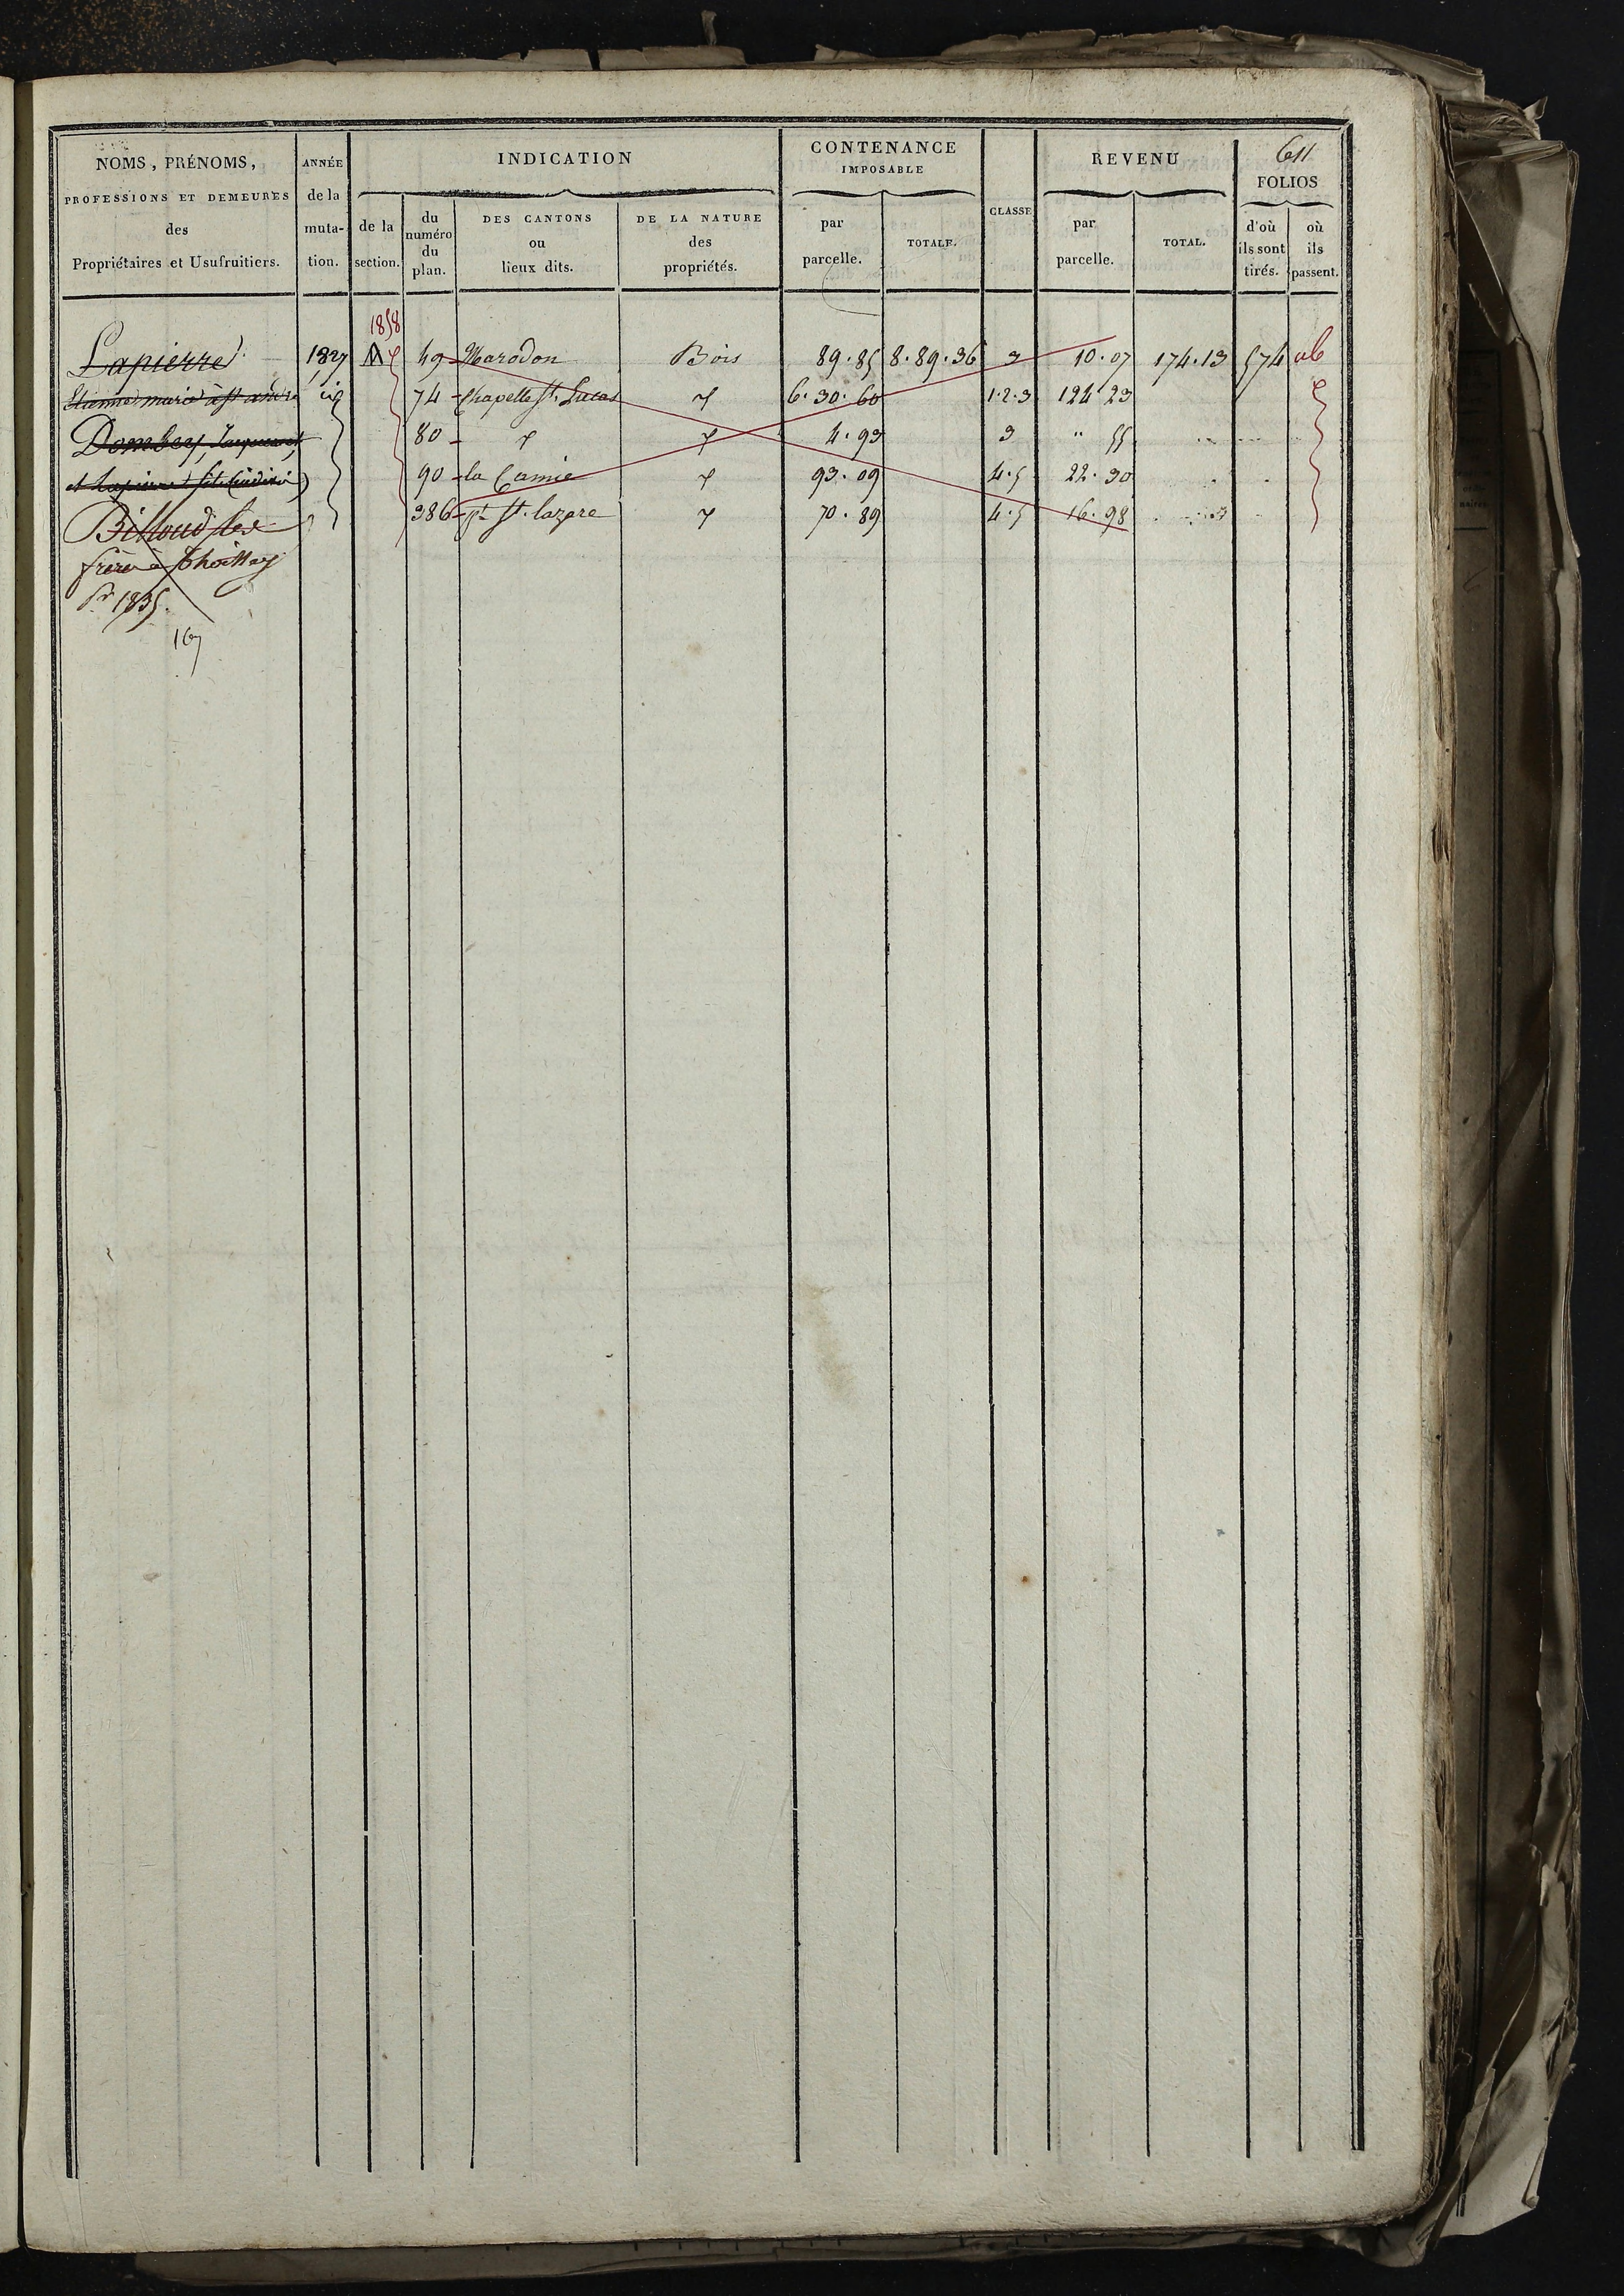 611
NOMS, PRÉNOMS, PROFESSIONS ET DEMEURES des Propriétaires et Usufruitiers.
ANNÉE de la muta- tion.
INDICATION
de la section.
du numéro du plan.
DES CANTONS ou lieux dits.
DE LA NATURE des propriétés.
CONTENANCE IMPOSABLE
par parcelle.
TOTALE.
CLASSE
REVENU
par parcelle.
TOTAL.
FOLIOS
d'où ils sont tirés.
où ils passent.
1858
Lapierre 1827 49 Marodon Bois 89.85 8.89.36 3 10.07 174.13 574
Etienne marie à st andré 74 Chapelle st. Lucas 6.30.60 1.2.3 124 23
Dombey, Jacques 80 4.93 3 " 55
et Lapierre 90 la Camie 93.09 4.5 22.30
Billoud les 386 st. lazare 70.89 4.5 16.98
frères à Thoissey
Pr 1835.
167